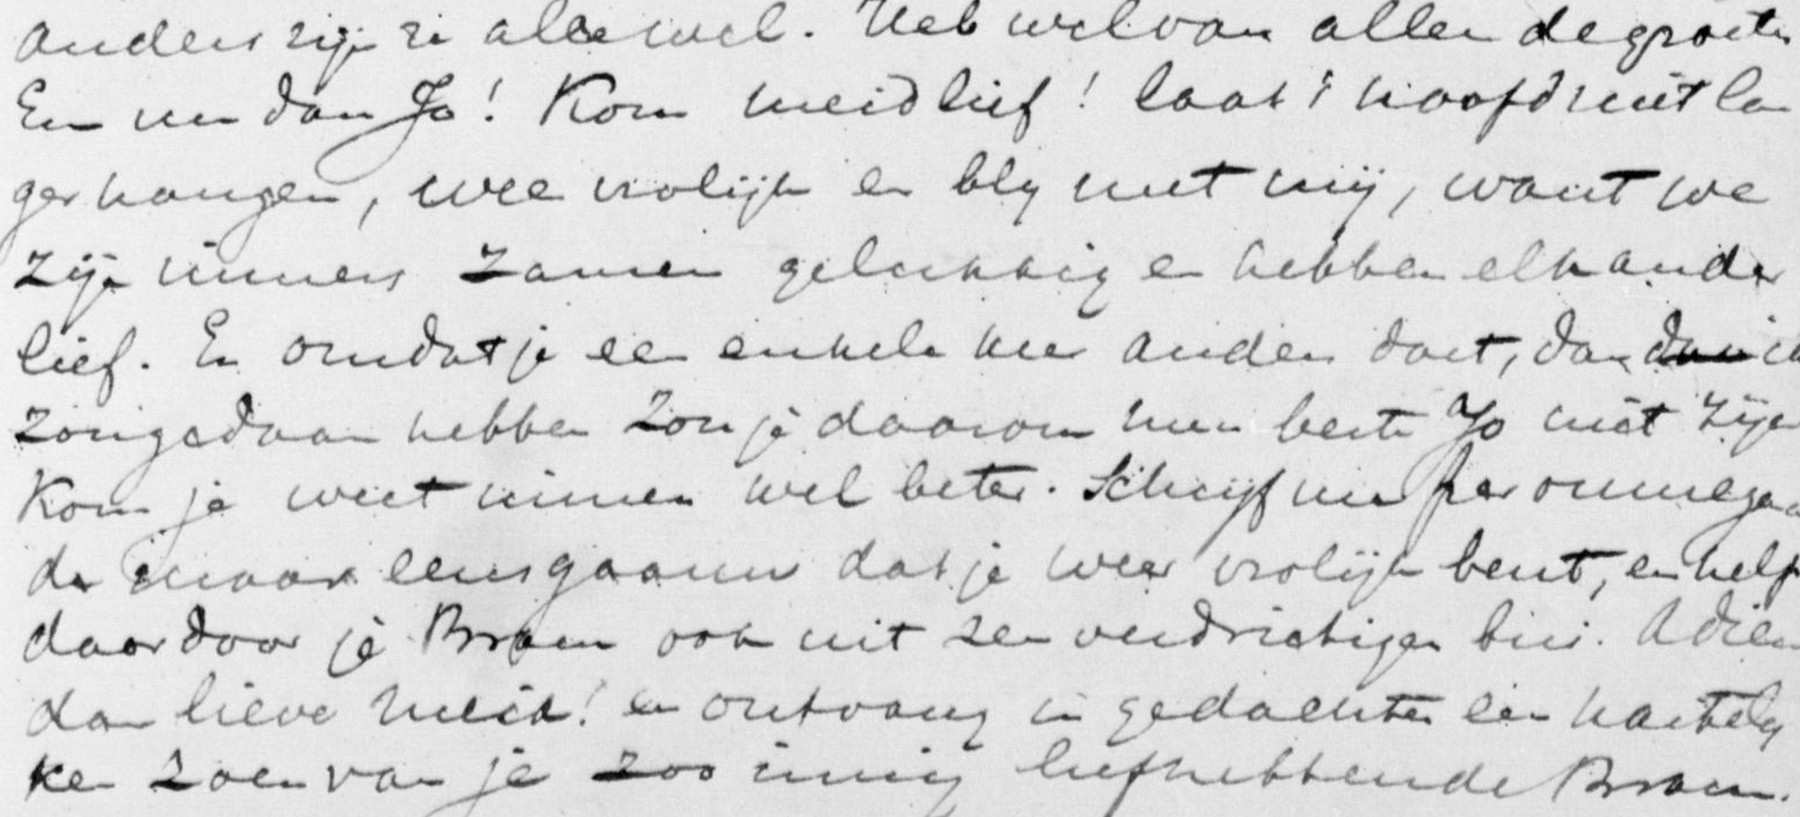 anders zijn ze alle wel. Heb wel van allen de groeten
En nu dan Jo! Kom meidlief! laat 't hoofd niet lan
ger hangen, wee vrolijk en bly met mij, want we
zijn immers zamen gelukkig en hebben elkander
lief. En omdat je een enkele keer anders doet, dan dan ik
zou gedaan hebben zou je daarom mijn beste Jo niet zijn
Kom je weet immers wel beter. Schrijf me per ommegaan
de maar eens gaauw dat je weer vrolijk bent, en help
daardoor je Bram ook uit zen verdrietige bui. Adieu
dan lieve meid! en ontvang in gedachten een hartely
ken zoen van je zoo innig liefhebbende Bram.